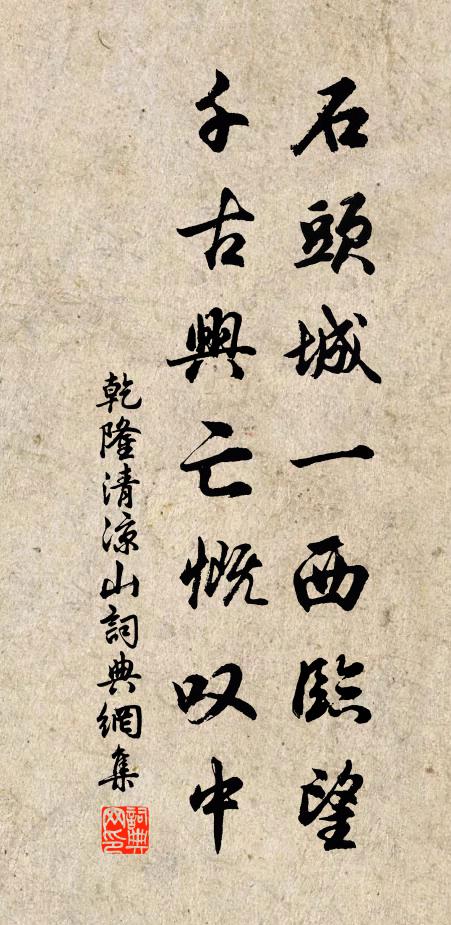 石頭城一西臨望
千古興亡慨叹中
乾隆清涼山詞典網集
詞典网印